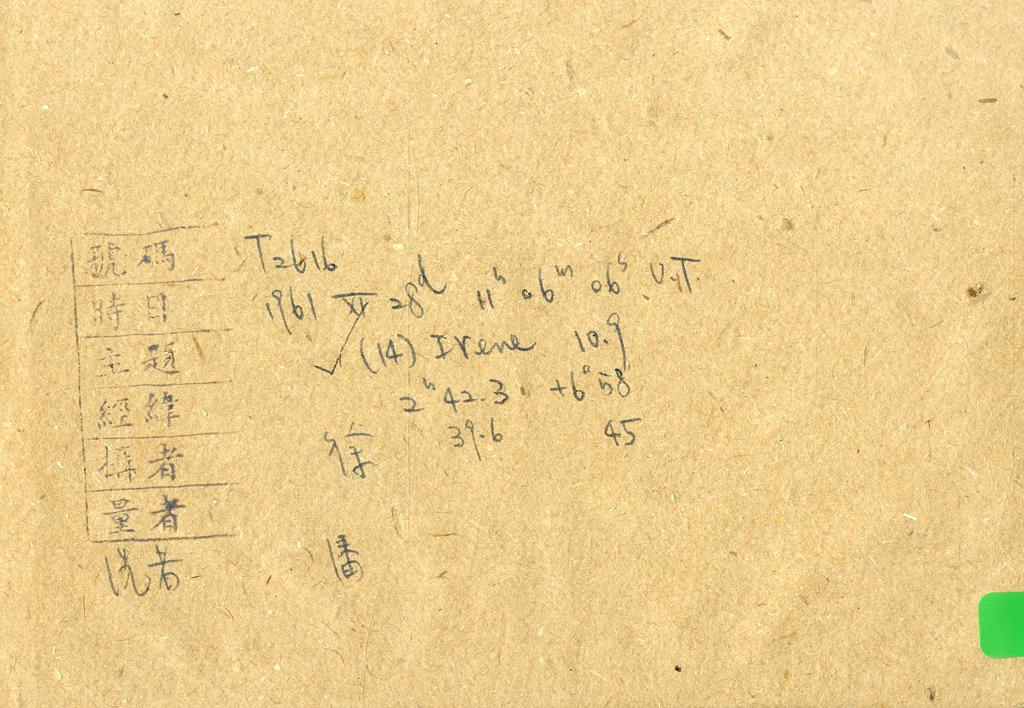 號碼 T2616
時日 1961 XI 28d 11h 06m 06s U.T.
主題 ✓ (14) Irene 10.9
經緯 2h 42.3 +6° 58
39.6 45
攝者 徐
量者
洗者 潘